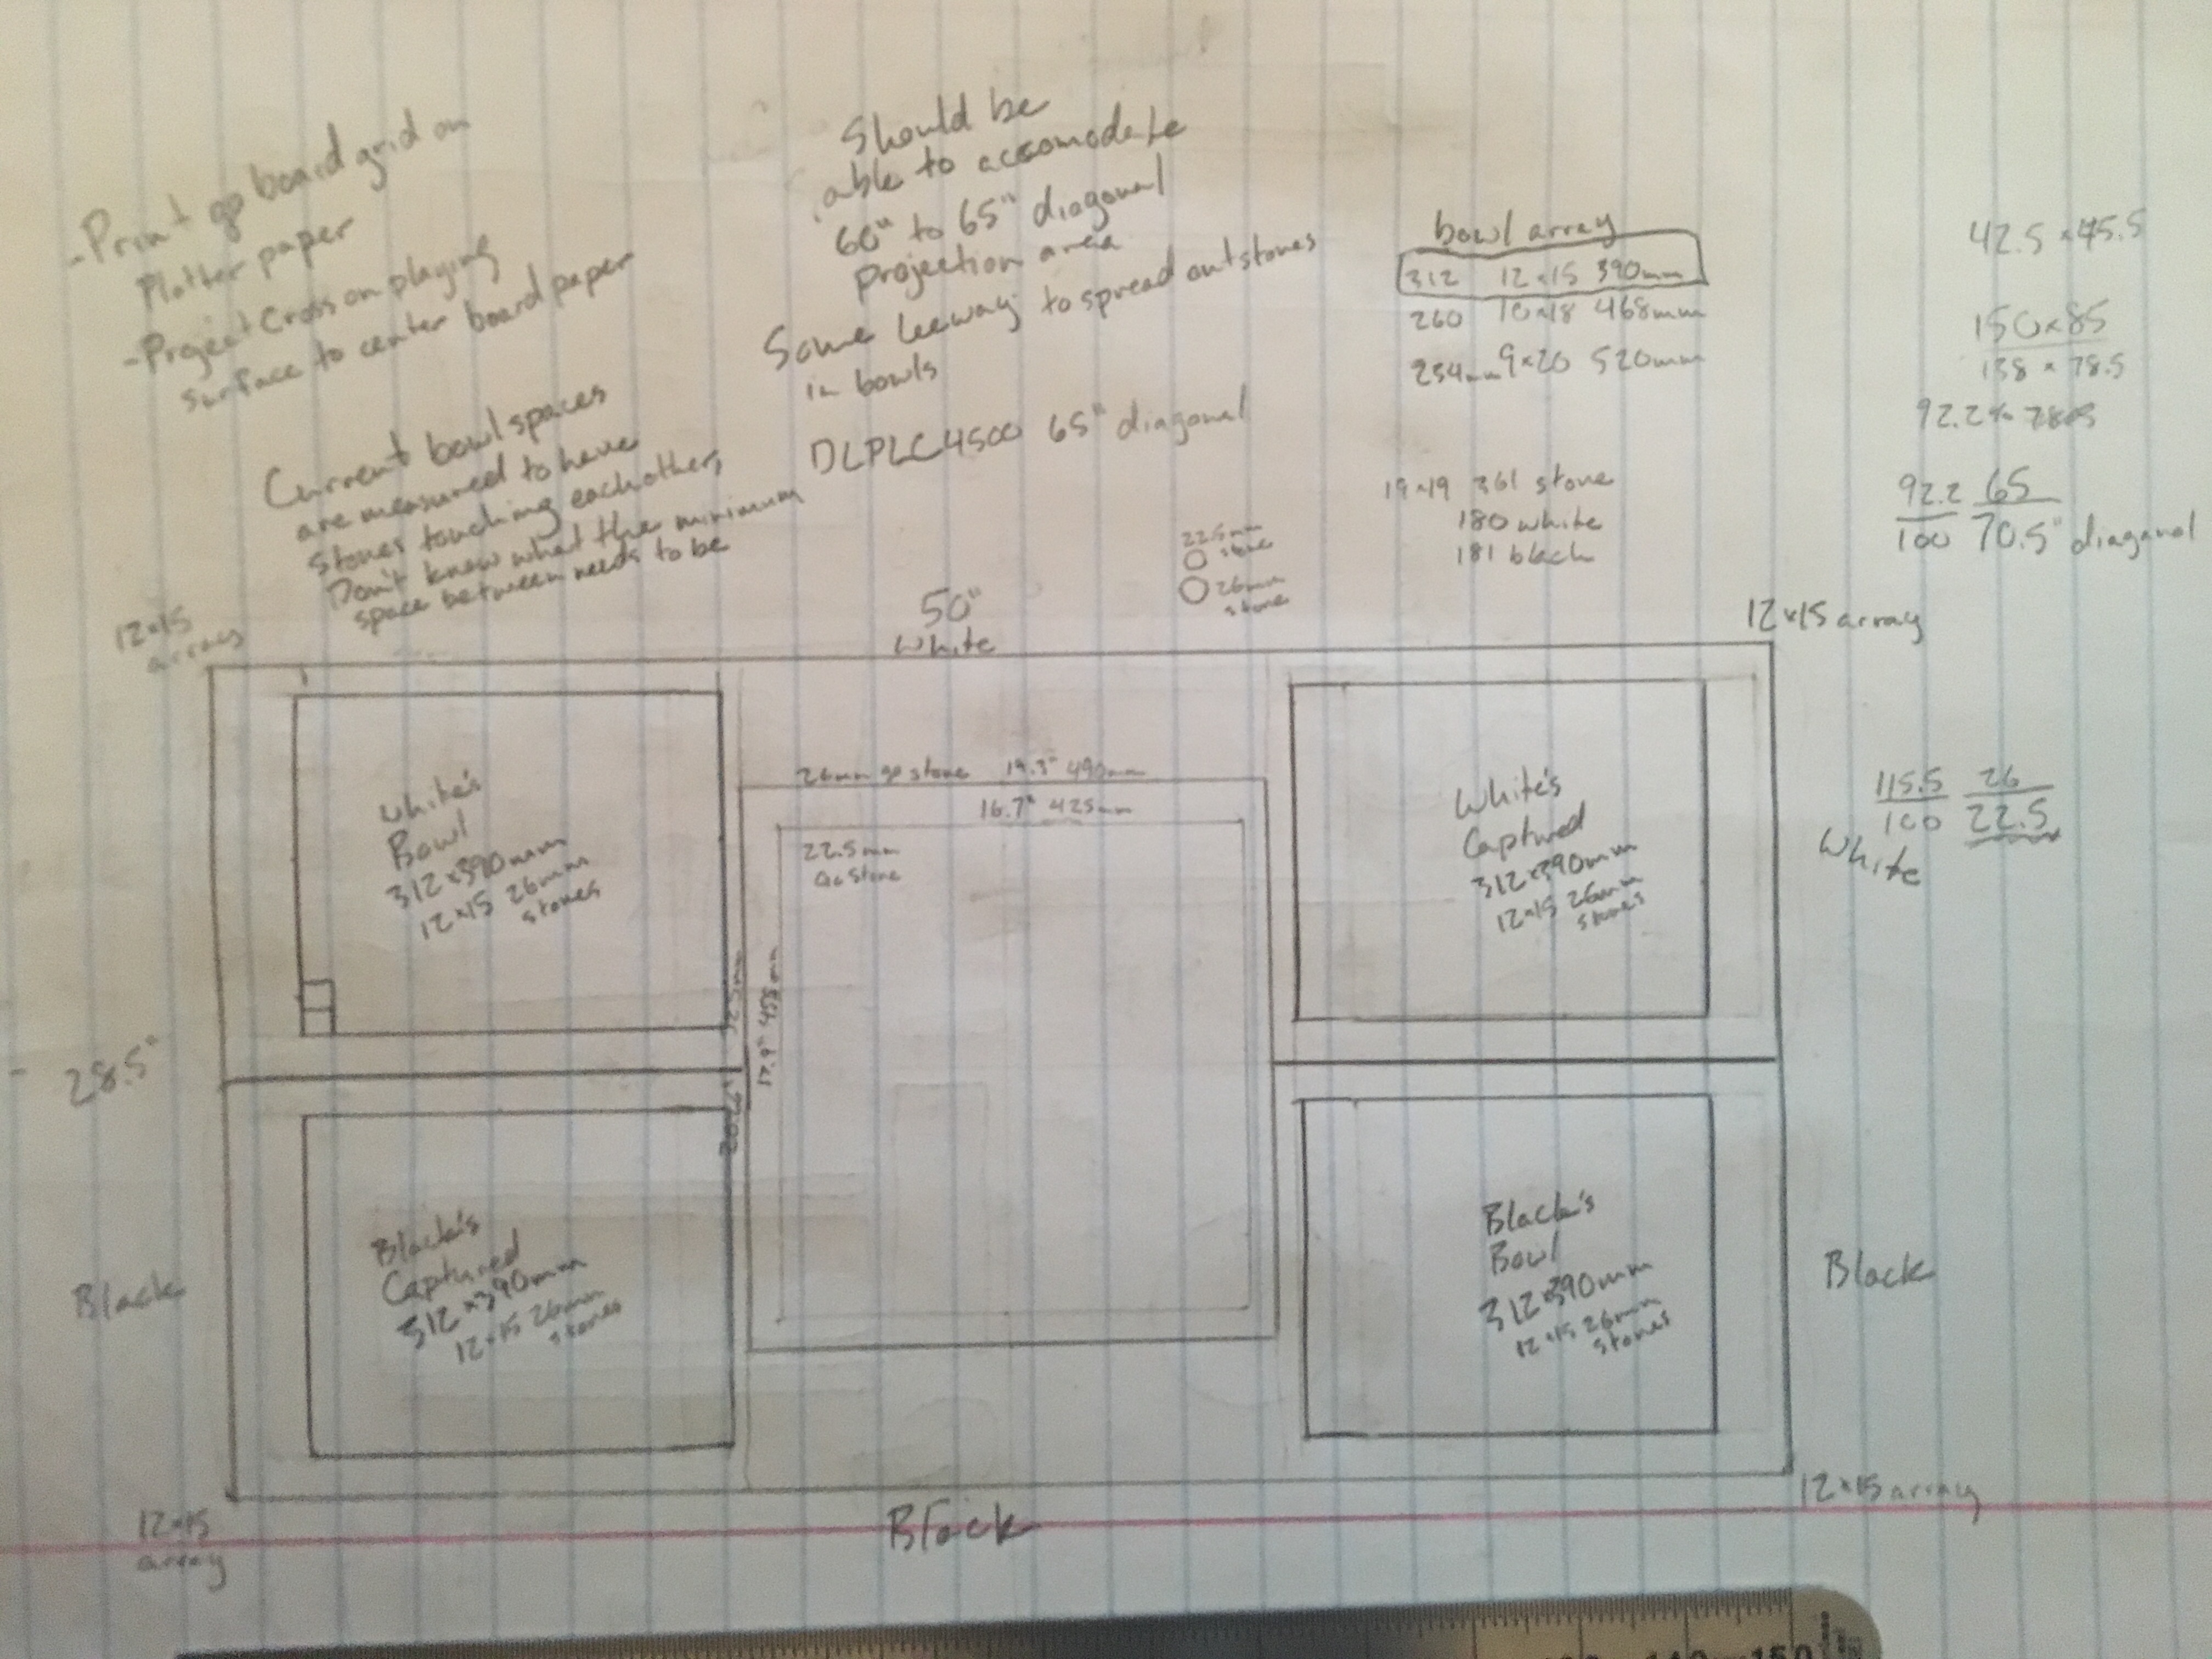 - Print go board grid on
Plotter paper
- Project Cross on playing
surface to center board paper
Current bowl spaces
are measured to have
stones touching each others
Don't know what the minimum
space between needs to be
Should be
able to accomodate
60" to 65" diagonal
Projection area
Some leeway to spread out stones
in bowls
DLPLC4500 65" diagonal
bowl array
312 12×15 390mm
260 10×18 468mm
234mm 9×20 520mm
19×19 361 stone
180 white
181 black
22.5mm
stone
26mm
stone
42.5 × 45.5
150×85
138 × 78.5
92.2%
92.2 65
100 70.5" diaganol
115.5 26
100 22.5
12×15
arrays
50"
White
12×15 array
White's
Bowl
312×390mm
12×15 26mm
stones
26mm go stone 19.3" 490mm
16.7" 425mm
22.5mm
Go Stone
17.9" 455mm
White's
Captured
312×390mm
12×15 26mm
stones
White
28.5"
Black
Black's
Captured
312×390mm
12×15 26mm
stones
Black's
Bowl
312×390mm
12×15 26mm
stones
Black
12×15
array
Black
12×15 array
150